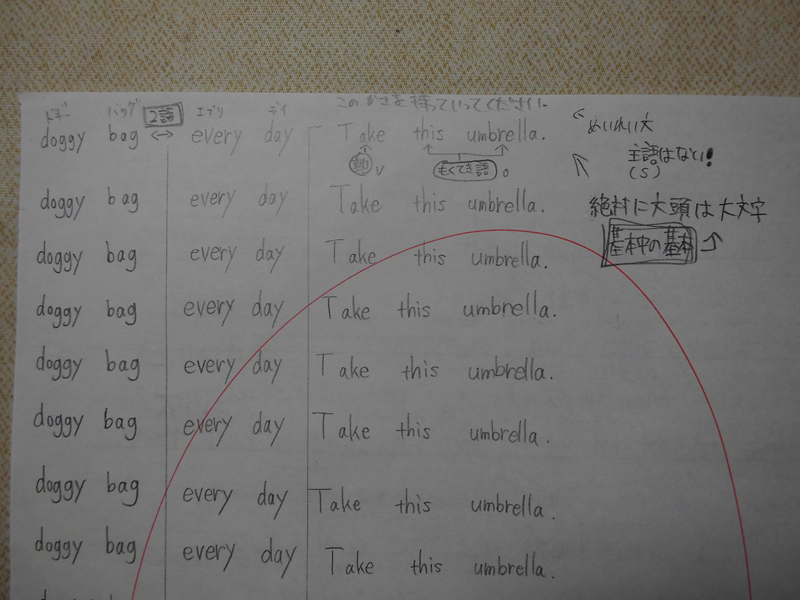 このかさを持っていってください。
ドギー バッグ 2語 エブリ デイ
doggy bag ↔ every day Take this umbrella.
めいれい文
動 V もくてき語 O
主語はない!
(S)
doggy bag every day Take this umbrella.
絶対に文頭は大文字
基本中の基本
doggy bag every day Take this umbrella.
doggy bag every day Take this umbrella.
doggy bag every day Take this umbrella.
doggy bag every day Take this umbrella.
doggy bag every day Take this umbrella.
doggy bag every day Take this umbrella.